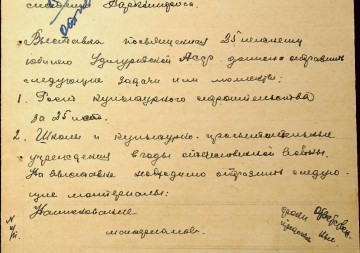 следующие Наркомпроса.
Выставка посвященная 25 летнему
юбилею Удмуртской АССР должна отразить
следующие задачи или моменты:
1. Рост культурного строительства
за 25 лет.
2. Школы и культурно-просветительные
учреждения в годы отечественной войны.
На выставке необходимо отразить следую-
щие материалы:
Наименование
материалов.
N
п/п.